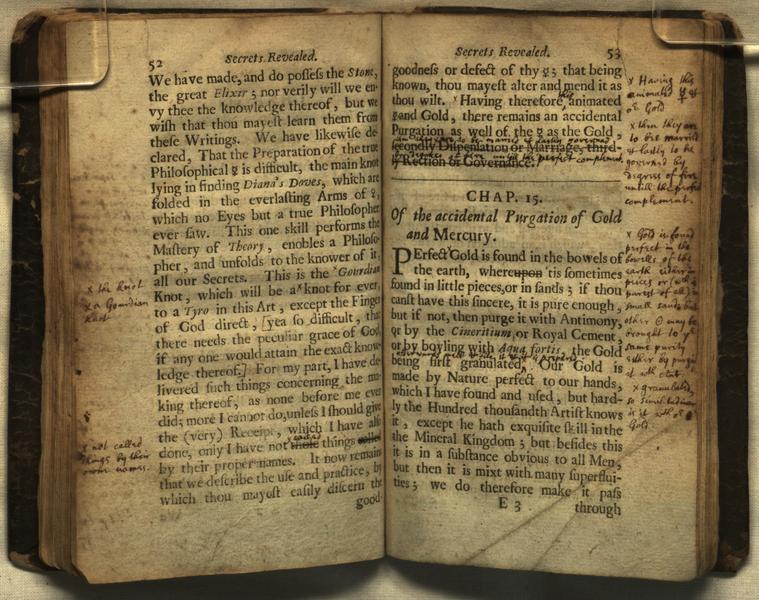 52
Secrets Revealed.
We have made, and do possess the Stone,
the great Elixir; nor verily will we en-
vy thee the knowledge thereof, but we
wish that thou mayest learn them from
these Writings. We have likewise de-
clared, That the Preparation of the true
Philosophical ☿ is difficult, the main knot
lying in finding Diana's Doves, which are
folded in the everlasting Arms of ♀,
which no Eyes but a true Philosopher
ever saw. This one skill performs the
Mastery of Theory, enobles a Philoso-
pher, and unfolds to the knower of it,
all our Secrets. This is the Gourdian
Knot, which will be a x knot for ever
to a Tyro in this Art, except the Finger
of God direct, [yea so difficult, that
there needs the peculiar grace of God
if any one would attain the exact know-
ledge thereof.] For my part, I have de-
livered such things concerning the ma-
king thereof, as none before me ever
did; more I cannot do, unless I should give
the (very) Receipt, which I have also
done, only I have not those things called
by their proper names. It now remains
that we describe the use and practice, by
which thou mayest easily discern the
good-
x the knot
x a Gourdian
knot
x not called
things by their
owne names.
Secrets Revealed.
53
goodness or defect of thy ☿; that being
known, thou mayest alter and mend it as
thou wilt. x Having therefore this animated
☿ and Gold, there remains an accidental
Purgation as well of the ☿ as the Gold,
secondly Dispensation or Marriage, third-
ly Rection or Governance.
CHAP. 15.
Of the accidental Purgation of Gold
and Mercury.
PErfect x Gold is found in the bowels of
the earth, whereupon 'tis sometimes
found in little pieces, or in sands; if thou
canst have this sincere, it is pure enough,
but if not, then purge it with Antimony,
or by the Cineritium, or Royal Cement,
or by boyling with Aqua fortis, the Gold
being first granulated, Our Gold is
made by Nature perfect to our hands,
which I have found and used, but hard-
ly the Hundred thousandth Artist knows
it, except he hath exquisite skill in the
the Mineral Kingdom; but besides this
it is in a substance obvious to all Men,
but then it is mixt with many superflui-
ties; we do therefore make it pass
E 3
through
x Having this
animated ☿
or Gold
x then they are
to bee married
lastly to be
governed by
degrees of fire
untill the perfect
complement.
x Gold is found
perfect in the
bowells of the
earth either in
pieces or
small sands but
other may be
brought to
same purity
either by purge
x granulated
Gold.